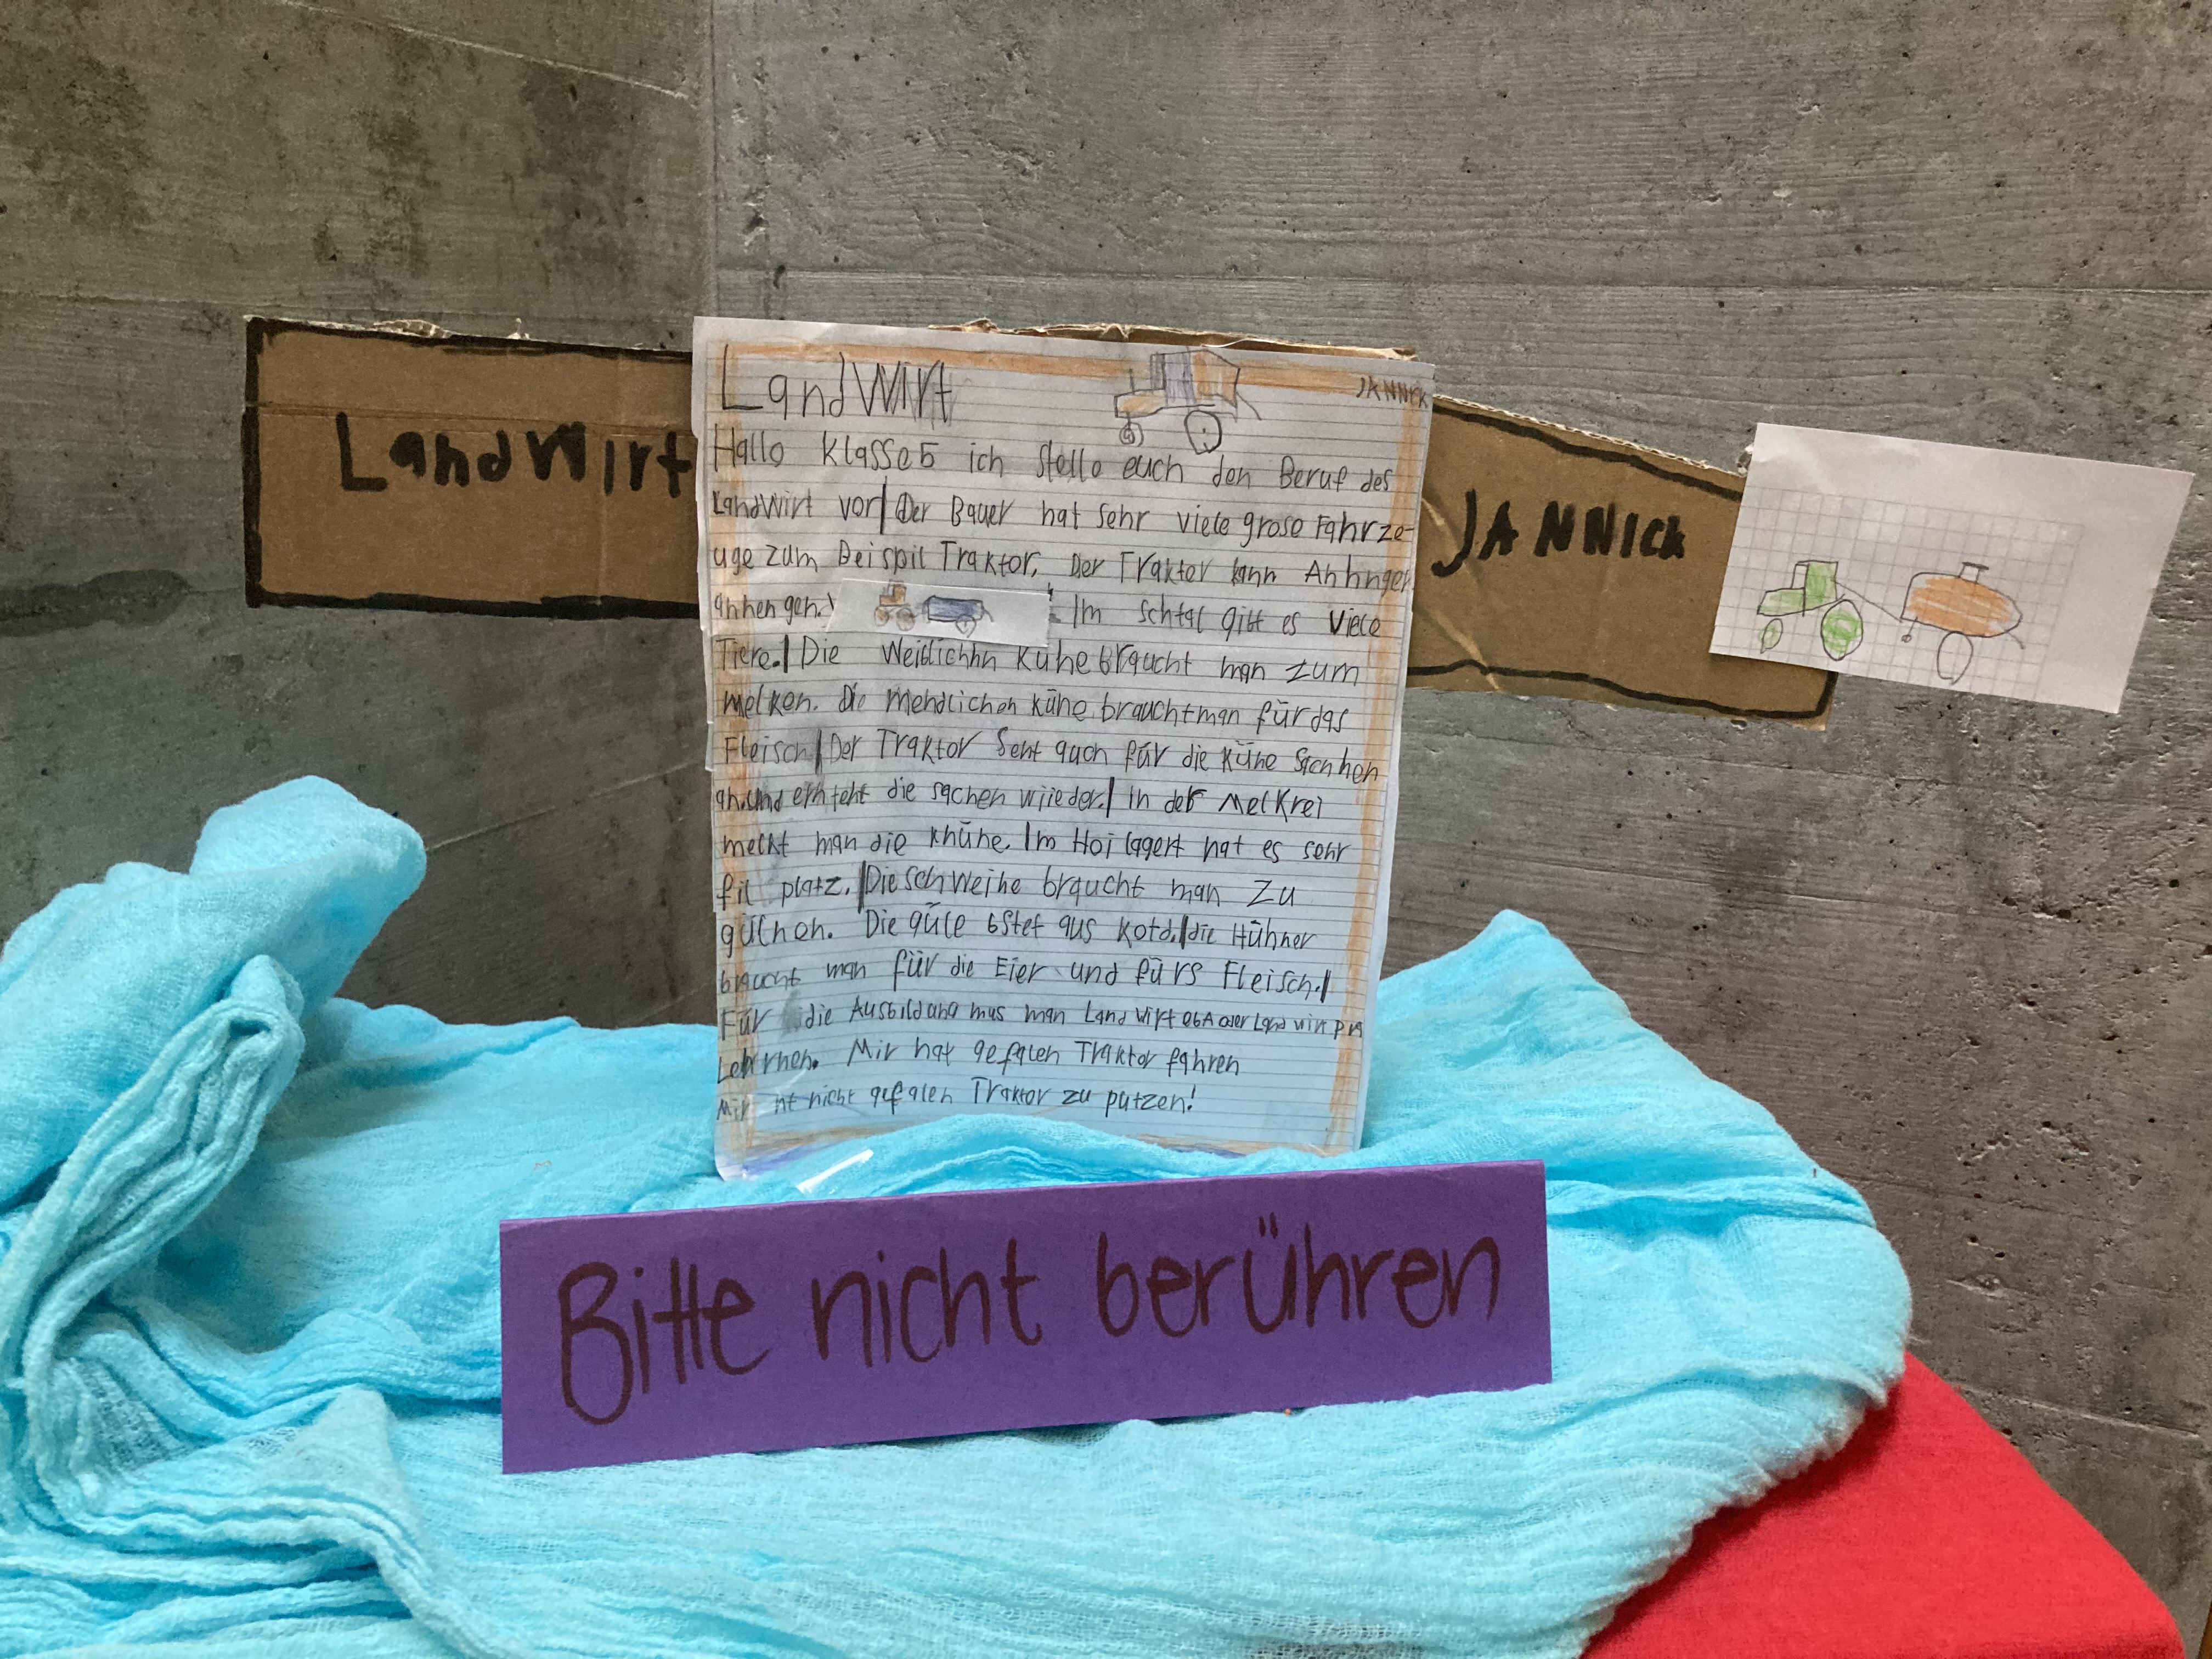 LandWirt
LandWirt
JANNICK
Hallo Klasse 5 ich stelle euch den Beruf des
LandWirt vor| Der Bauer hat sehr viele grose Fahrze-
uge zum Beispil Traktor. Der Traktor kann Anhnger
anhengen.
Im schtal gibt es viele
Tiere.| Die Weiblichhn Kühe braucht man zum
melken. Die mendlichen Kühe braucht man für das
Fleisch| Der Traktor Seht auch für die Kühe
an. und ernteht die sachen wiieder.| in der Melkrei
melkt man die Khühe. Im Hoi lagert hat es sehr
fil platz.| Die schweihe braucht man zu
gülhen. Die güle bstet aus Kotd.| die Hühner
braucht man für die Eier und fürs Fleisch.|
Für die Ausbildung mus man Land Wirt oder Land wirt
Lehrnen. Mir hat gefalen Traktor fahren
Mir ht nicht gefalen Traktor zu putzen!
JANNICK
Bitte nicht berühren